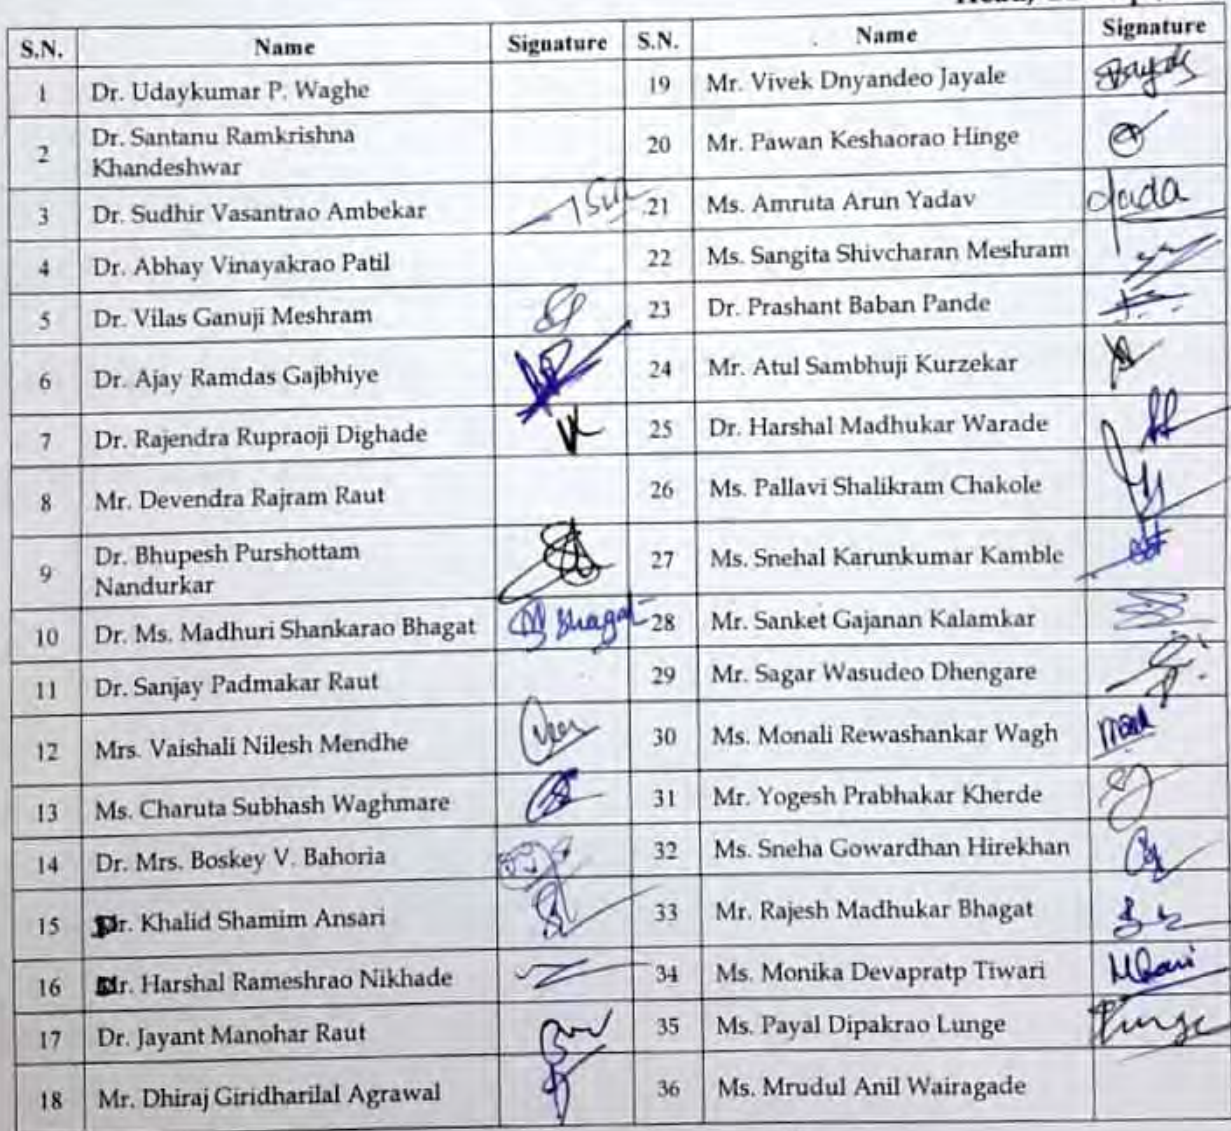 S.N. Name Signature S.N. Name Signature
1 Dr. Udaykumar P. Waghe 19 Mr. Vivek Dnyandeo Jayale
2 Dr. Santanu Ramkrishna Khandeshwar 20 Mr. Pawan Keshaorao Hinge
3 Dr. Sudhir Vasantrao Ambekar 21 Ms. Amruta Arun Yadav
4 Dr. Abhay Vinayakrao Patil 22 Ms. Sangita Shivcharan Meshram
5 Dr. Vilas Ganuji Meshram 23 Dr. Prashant Baban Pande
6 Dr. Ajay Ramdas Gajbhiye 24 Mr. Atul Sambhuji Kurzekar
7 Dr. Rajendra Rupraoji Dighade 25 Dr. Harshal Madhukar Warade
8 Mr. Devendra Rajram Raut 26 Ms. Pallavi Shalikram Chakole
9 Dr. Bhupesh Purshottam Nandurkar 27 Ms. Snehal Karunkumar Kamble
10 Dr. Ms. Madhuri Shankarao Bhagat Bhagat 28 Mr. Sanket Gajanan Kalamkar
11 Dr. Sanjay Padmakar Raut 29 Mr. Sagar Wasudeo Dhengare
12 Mrs. Vaishali Nilesh Mendhe 30 Ms. Monali Rewashankar Wagh
13 Ms. Charuta Subhash Waghmare 31 Mr. Yogesh Prabhakar Kherde
14 Dr. Mrs. Boskey V. Bahoria 32 Ms. Sneha Gowardhan Hirekhan
15 Dr. Khalid Shamim Ansari 33 Mr. Rajesh Madhukar Bhagat
16 Dr. Harshal Rameshrao Nikhade 34 Ms. Monika Devapratp Tiwari
17 Dr. Jayant Manohar Raut 35 Ms. Payal Dipakrao Lunge
18 Mr. Dhiraj Giridharilal Agrawal 36 Ms. Mrudul Anil Wairagade